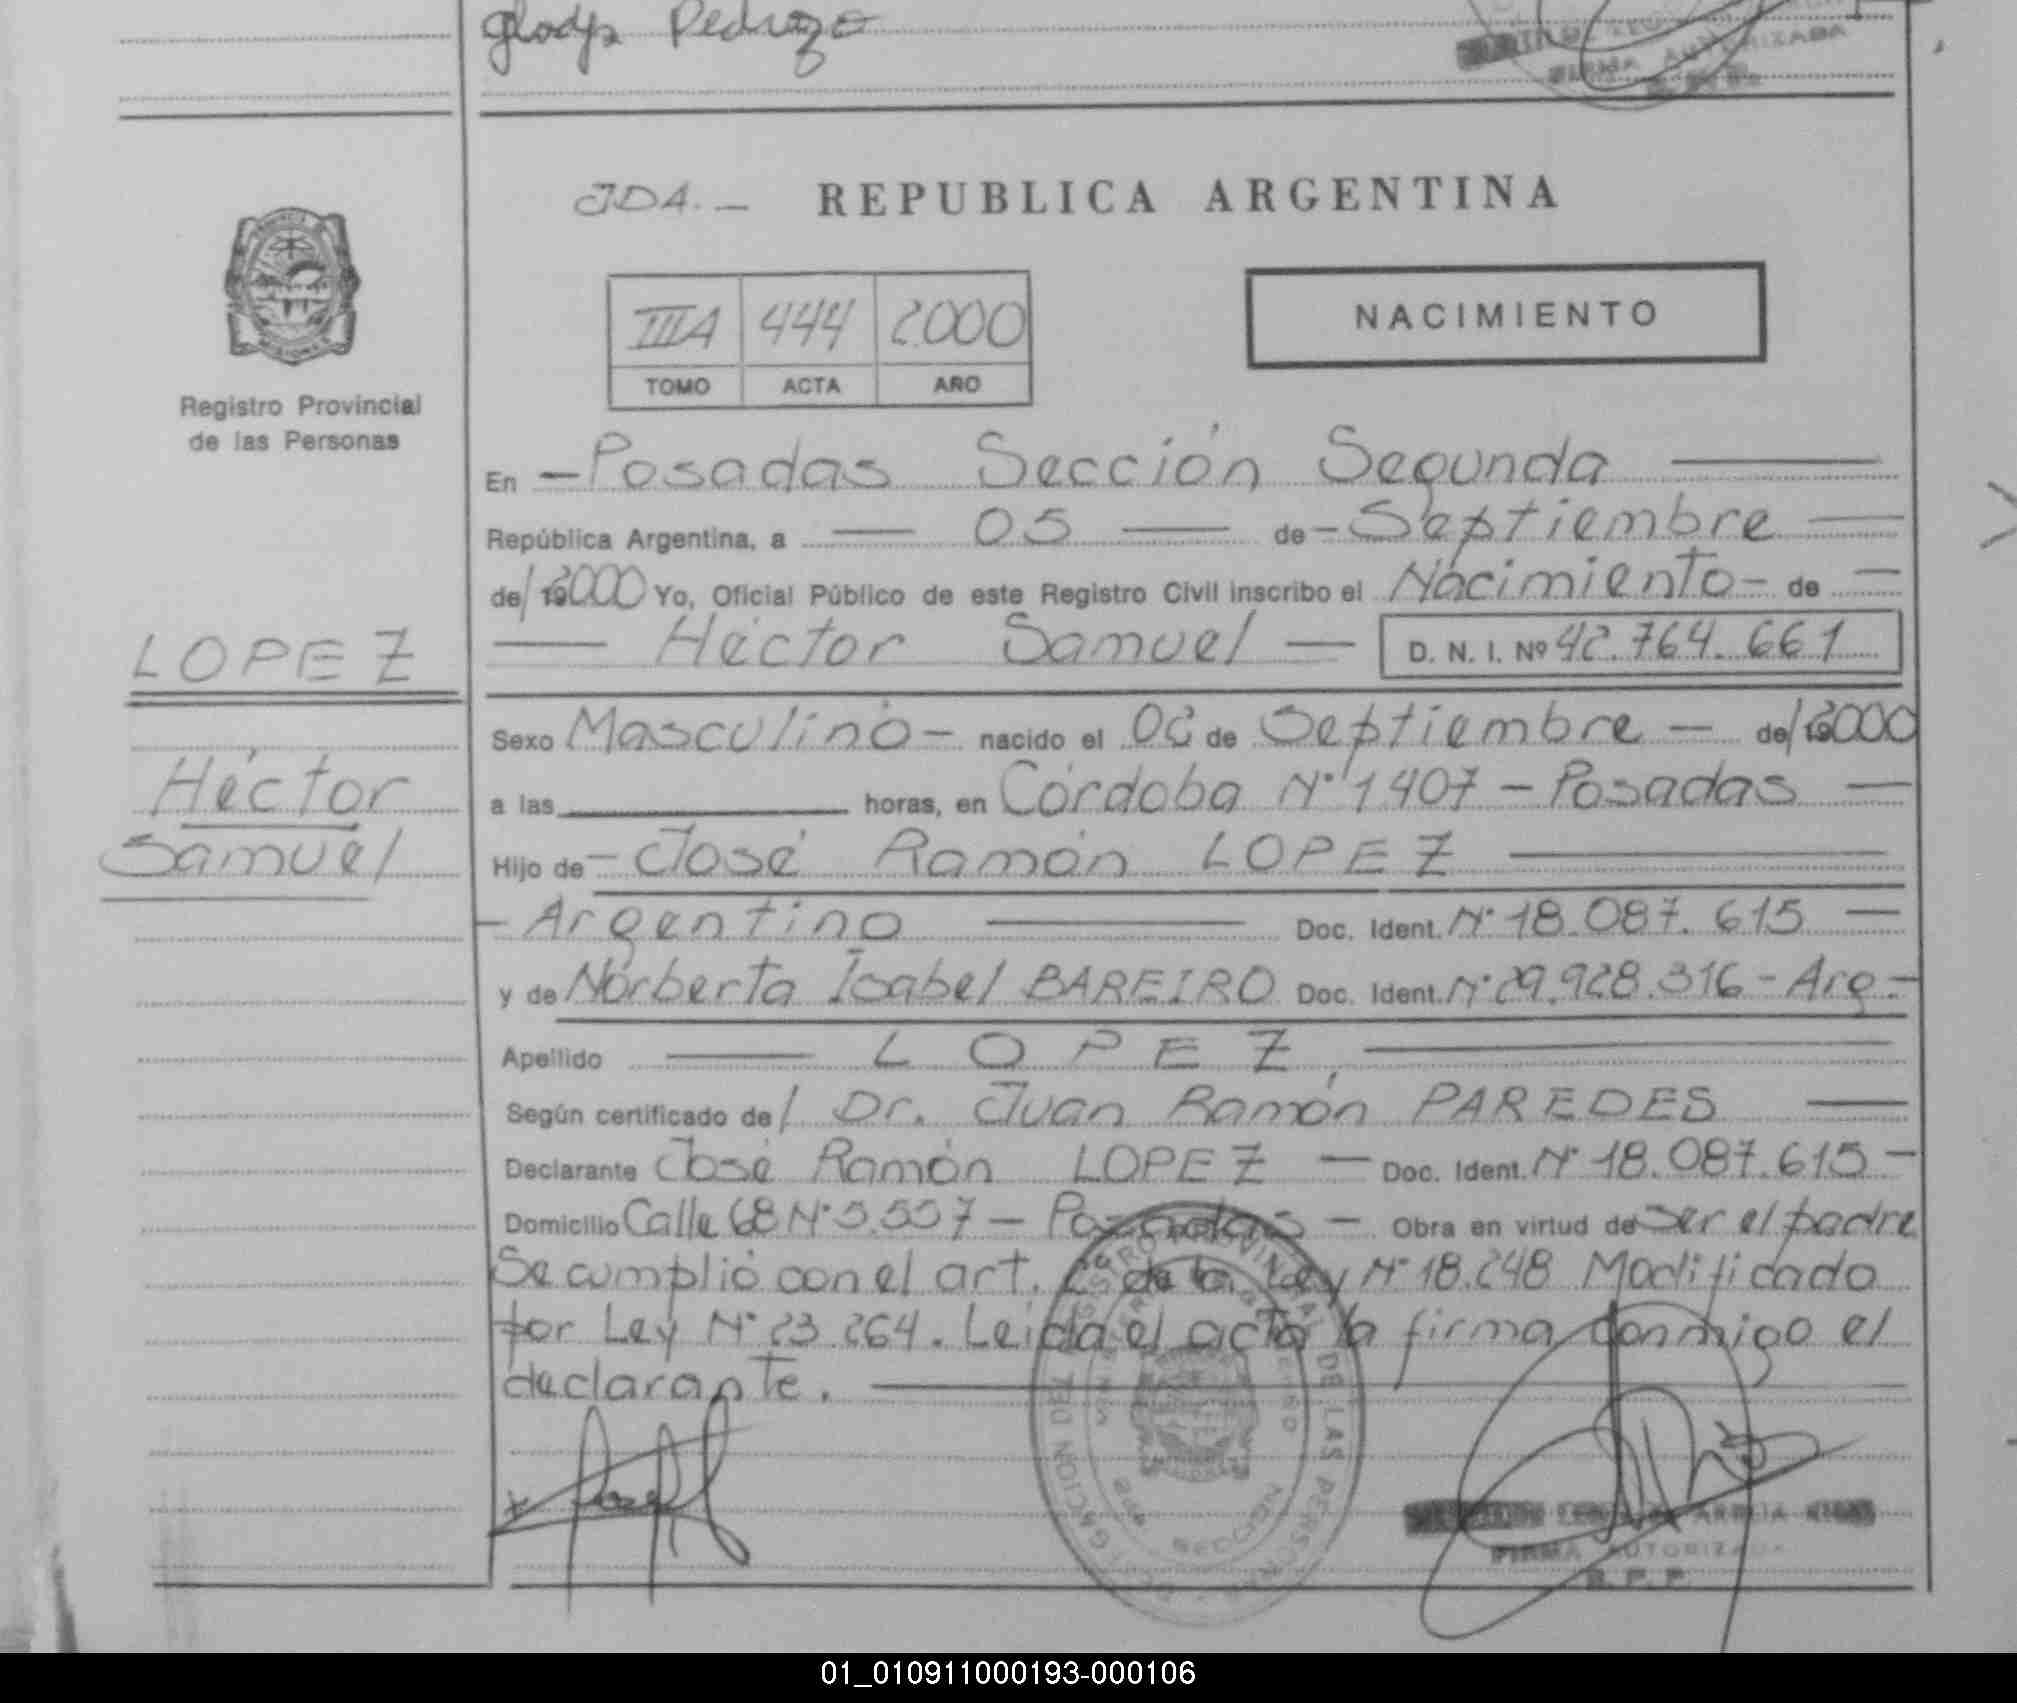 Gladys Pedrozo
FIRMA AUTORIZADA
JDA.- REPUBLICA ARGENTINA
IIIA 444 2000
TOMO ACTA AÑO
NACIMIENTO
Registro Provincial
de las Personas
En - Posadas Sección Segunda
República Argentina, a - 05 - de - Septiembre -
de/ 2000 Yo, Oficial Público de este Registro Civil inscribo el Nacimiento - de -
LOPEZ
- Héctor Samuel - D. N. I. Nº 42.764.661
Sexo Masculino - nacido el 02 de Septiembre - de/ 2000
Héctor
a las horas, en Córdoba N° 1407 - Posadas -
Samuel
Hijo de - José Ramón LOPEZ
- Argentino - Doc. Ident. N° 18.087.615 -
y de Norberta Isabel BAREIRO Doc. Ident. N° 29.928.316 - Arg -
Apellido - LOPEZ
Según certificado de/ Dr. Juan Ramón PAREDES -
Declarante José Ramón LOPEZ - Doc. Ident. N° 18.087.615 -
Domicilio Calle 68 N° 5.557 - Posadas - Obra en virtud de Ser el padre
Se cumplió con el art. 2° de la Ley N° 18.248 Modificado
por Ley N° 23.264. Leida el acta la firma conmigo el
declarante.
REGISTRO PROVINCIAL DE LAS PERSONAS
FIRMA AUTORIZADA
R. P. P.
01_010911000193-000106